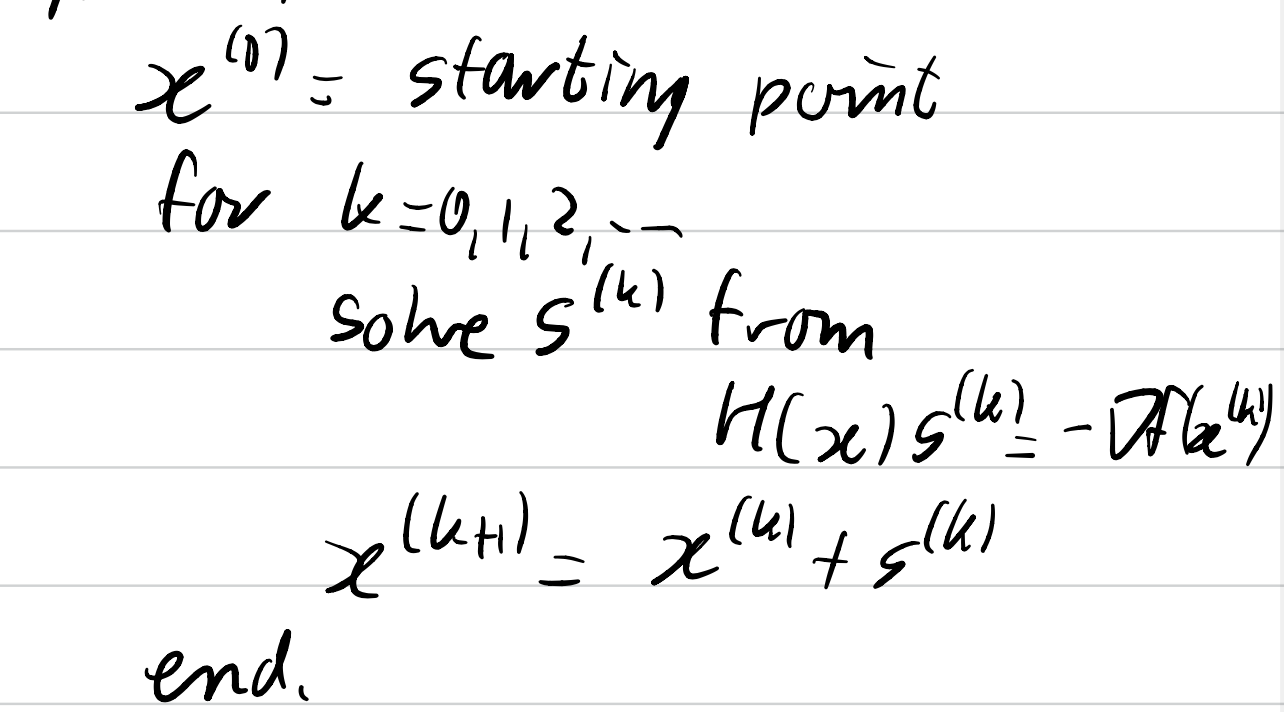 x^(0) = starting point
for k=0,1,2,...
solve s^(k) from
H(x) s^(k) = -∇f(x^(k))
x^(k+1) = x^(k) + s^(k)
end.